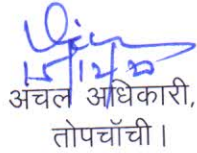 15/12/20
अंचल अधिकारी,
तोपचाँची।